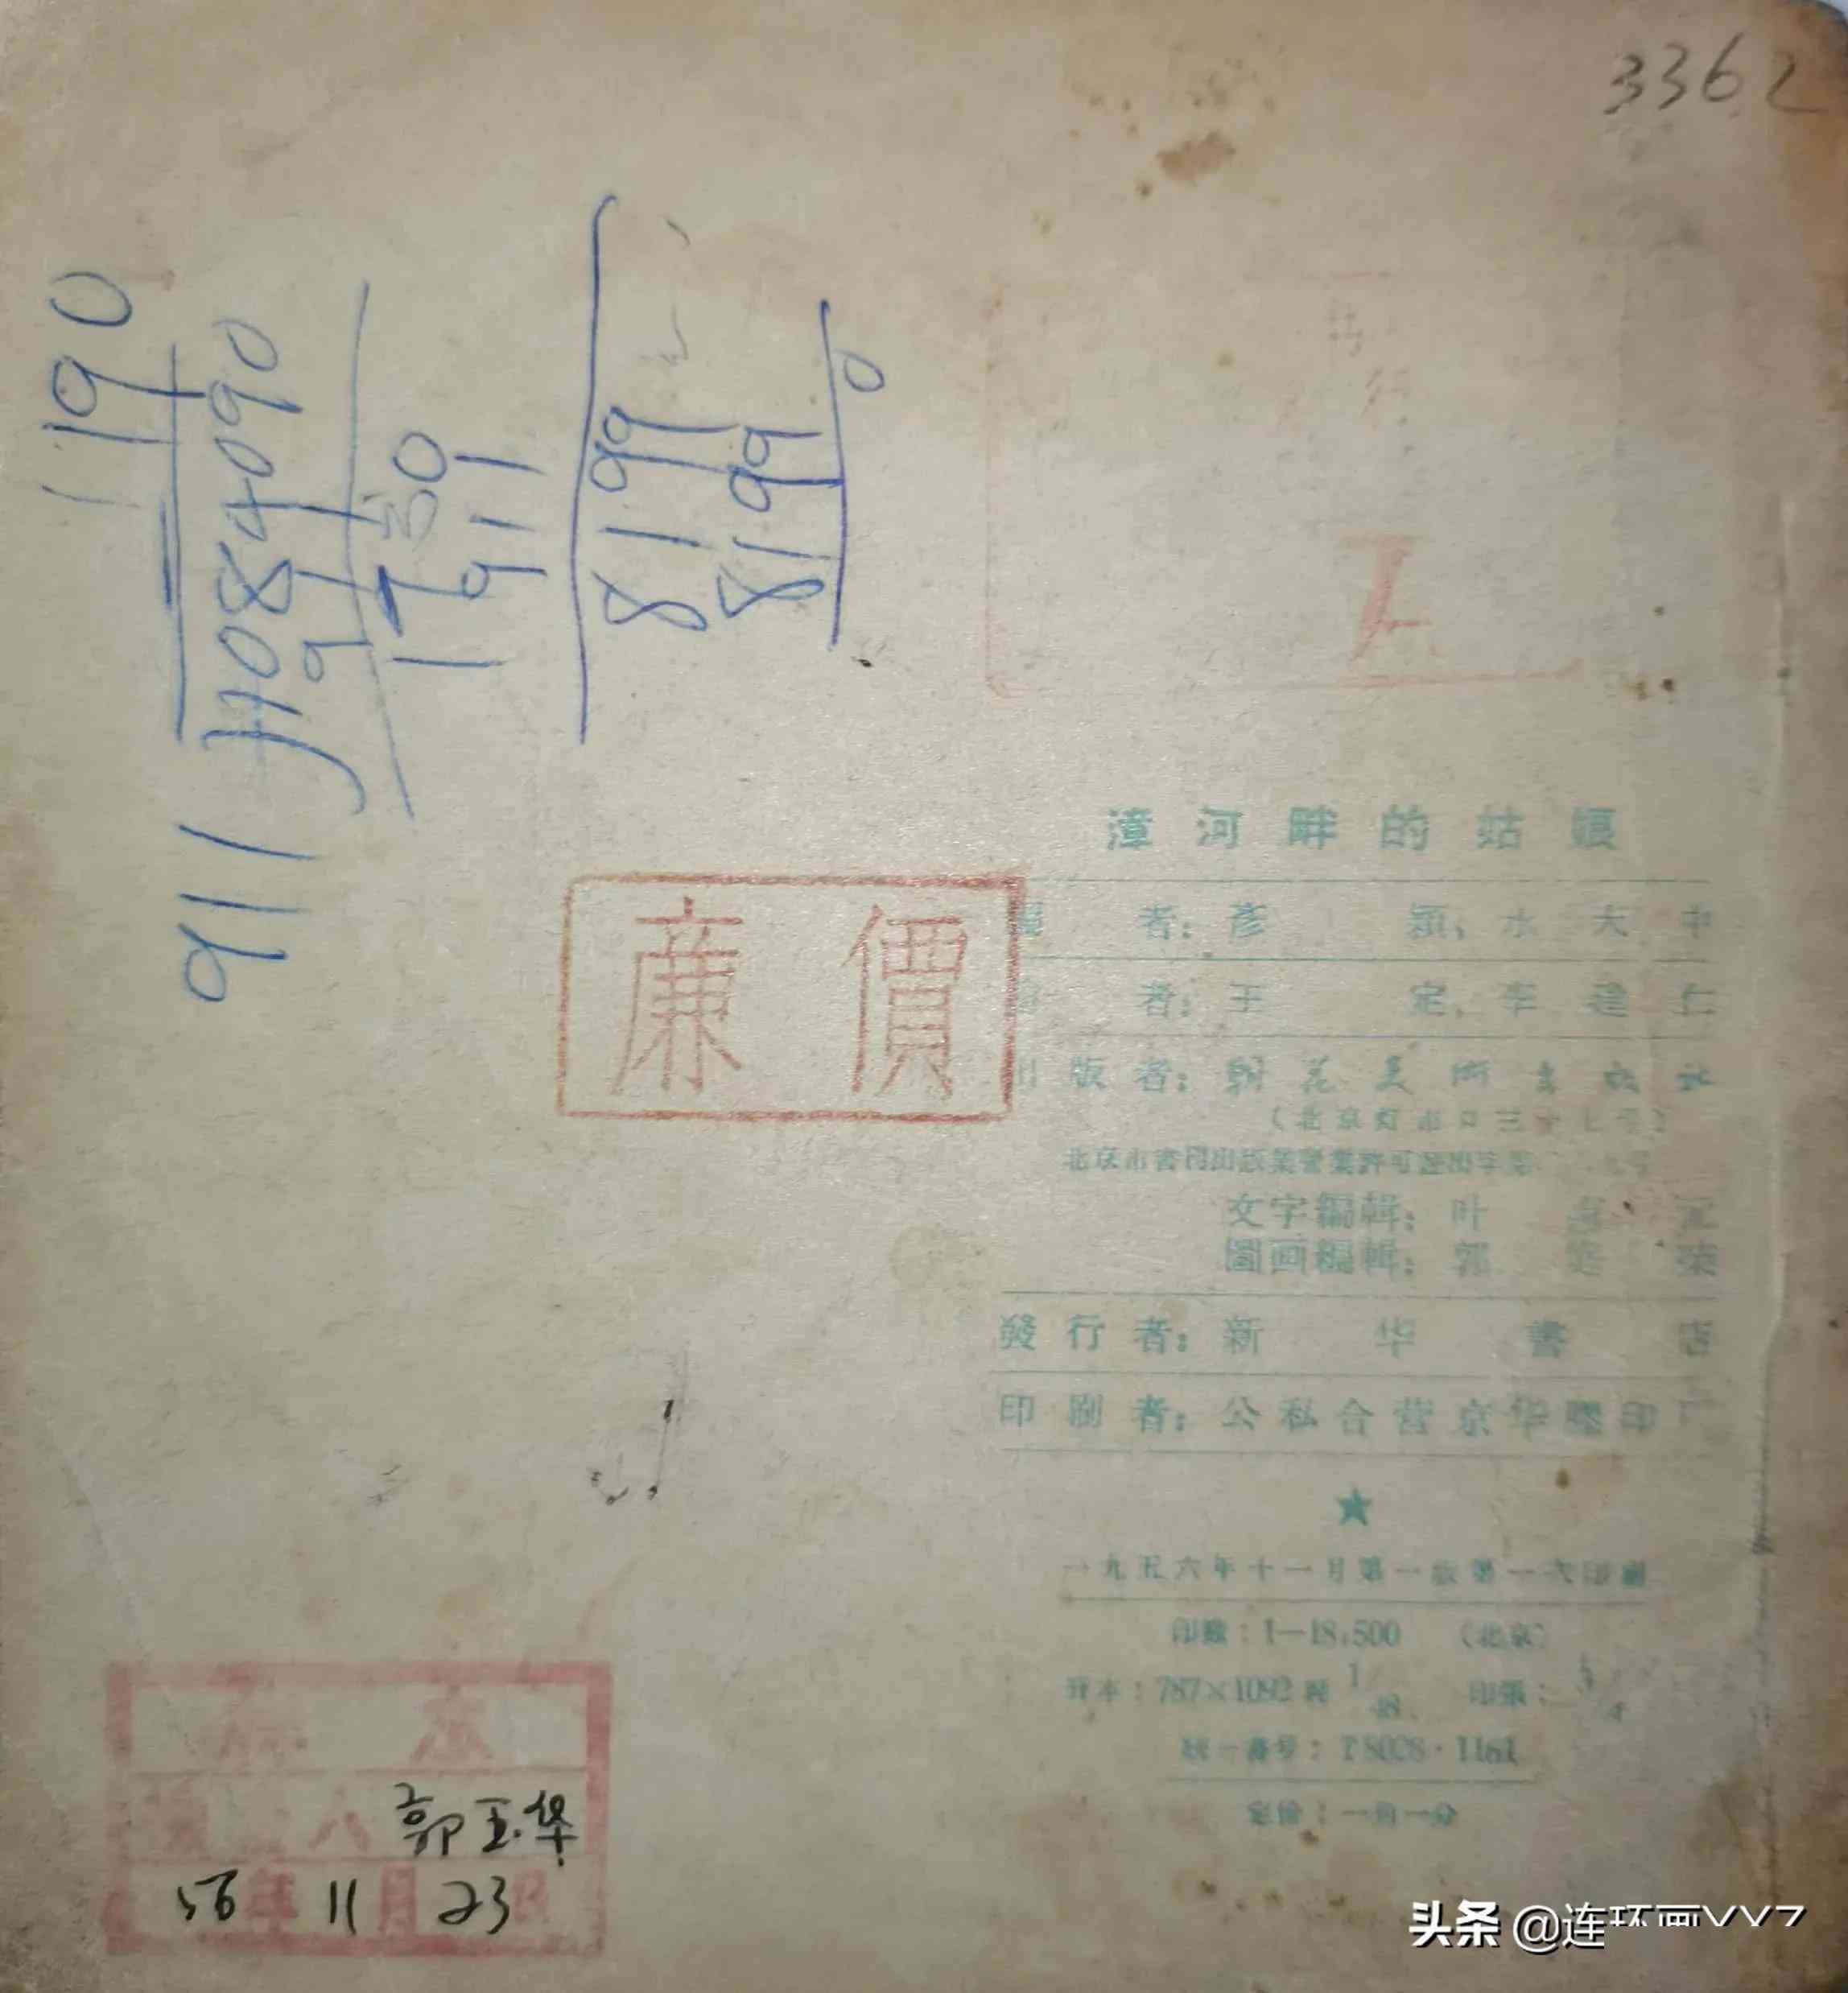 3362
1190
911
1084090
911
1730
911
8199
8199
0
漳河畔的姑娘
者：彦 颖，水天中
者：王 定，李建仁
出版者：朝花美術出版社
（北京灯市口三十七号）
北京市書刊出版業營業許可證出字第
文字編輯：叶
圖画編輯：郭 榮
發行者：新华書店
印刷者：公私合营京华膠印厂
廉價
★
一九五六年十一月第一版第一次印刷
印數：1—18,500 （北京）
开本：787×1092耗 1/48 印張：5/4
統一書号：T8028·1161
定价：一角一分
八 郭玉华
56年11月23日
头条 @连环画XYZ